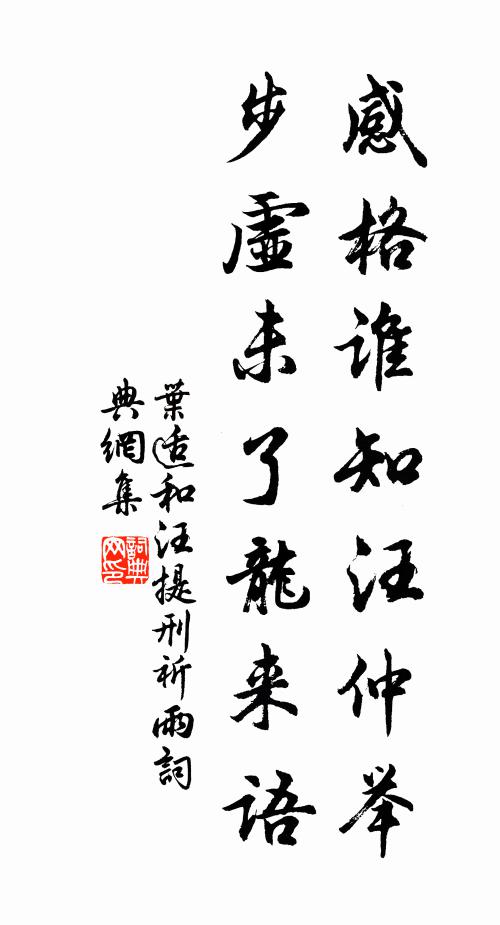 感格谁知汪仲举
步虚未了龍来语
葉适和汪提刑祈雨詞
典網集
詞典网印